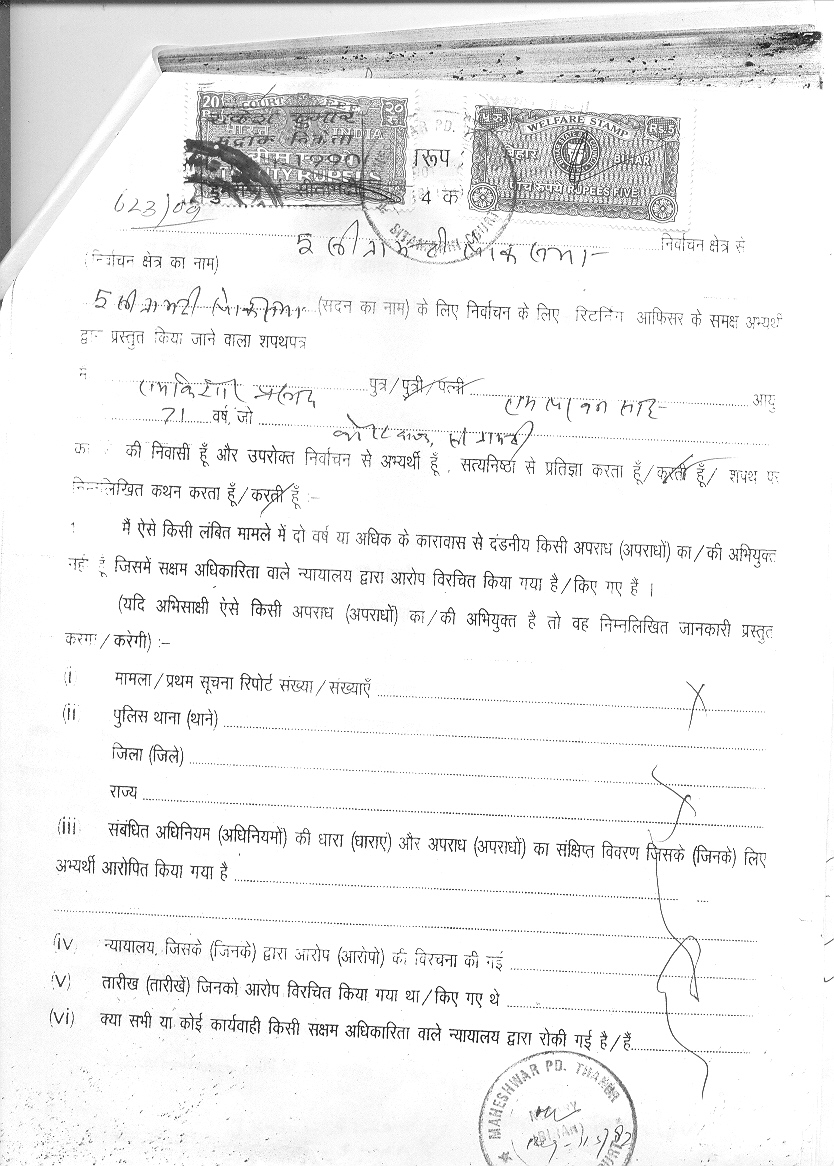 20 COURT FEE २०
भारत INDIA
TWENTY RUPEES
WELFARE STAMP
RS.5
बिहार BIHAR
पाँच रूपये RUPEES FIVE
रूप :
4 क
623/09
5 सीतामढ़ी लोक सभा निर्वाचन क्षेत्र से
(निर्वाचन क्षेत्र का नाम)
5 सीतामढ़ी लोकसभा (सदन का नाम) के लिए निर्वाचन के लिए रिटर्निंग आफिसर के समक्ष अभ्यर्थी
द्वारा प्रस्तुत किया जाने वाला शपथपत्र
मैं रामकिशोर प्रसाद पुत्र/पुत्री/पत्नी आयु
71 वर्ष, जो कोट बाजार, सीतामढ़ी
का की निवासी हूँ और उपरोक्त निर्वाचन से अभ्यर्थी हूँ, सत्यनिष्ठा से प्रतिज्ञा करता हूँ/करती हूँ/ शपथ पर
निम्नलिखित कथन करता हूँ/करती हूँ :-
1 मैं ऐसे किसी लंबित मामले में दो वर्ष या अधिक के कारावास से दंडनीय किसी अपराध (अपराधों) का/की अभियुक्त
नहीं हूँ जिसमें सक्षम अधिकारिता वाले न्यायालय द्वारा आरोप विरचित किया गया है/किए गए हैं ।
(यदि अभिसाक्षी ऐसे किसी अपराध (अपराधों) का/की अभियुक्त है तो वह निम्नलिखित जानकारी प्रस्तुत
करेगा/करेगी) :-
(i मामला/प्रथम सूचना रिपोर्ट संख्या/संख्याएँ
(ii) पुलिस थाना (थाने)
जिला (जिले)
राज्य
(iii) संबंधित अधिनियम (अधिनियमों) की धारा (धाराएं) और अपराध (अपराधों) का संक्षिप्त विवरण जिसके (जिनके) लिए
अभ्यर्थी आरोपित किया गया है
(iv) न्यायालय, जिसके (जिनके) द्वारा आरोप (आरोपो) की विरचना की गई
(v) तारीख (तारीखें) जिनको आरोप विरचित किया गया था/किए गए थे
(vi) क्या सभी या कोई कार्यवाही किसी सक्षम अधिकारिता वाले न्यायालय द्वारा रोकी गई है/हैं
MAHESHWAR PD. THAKUR